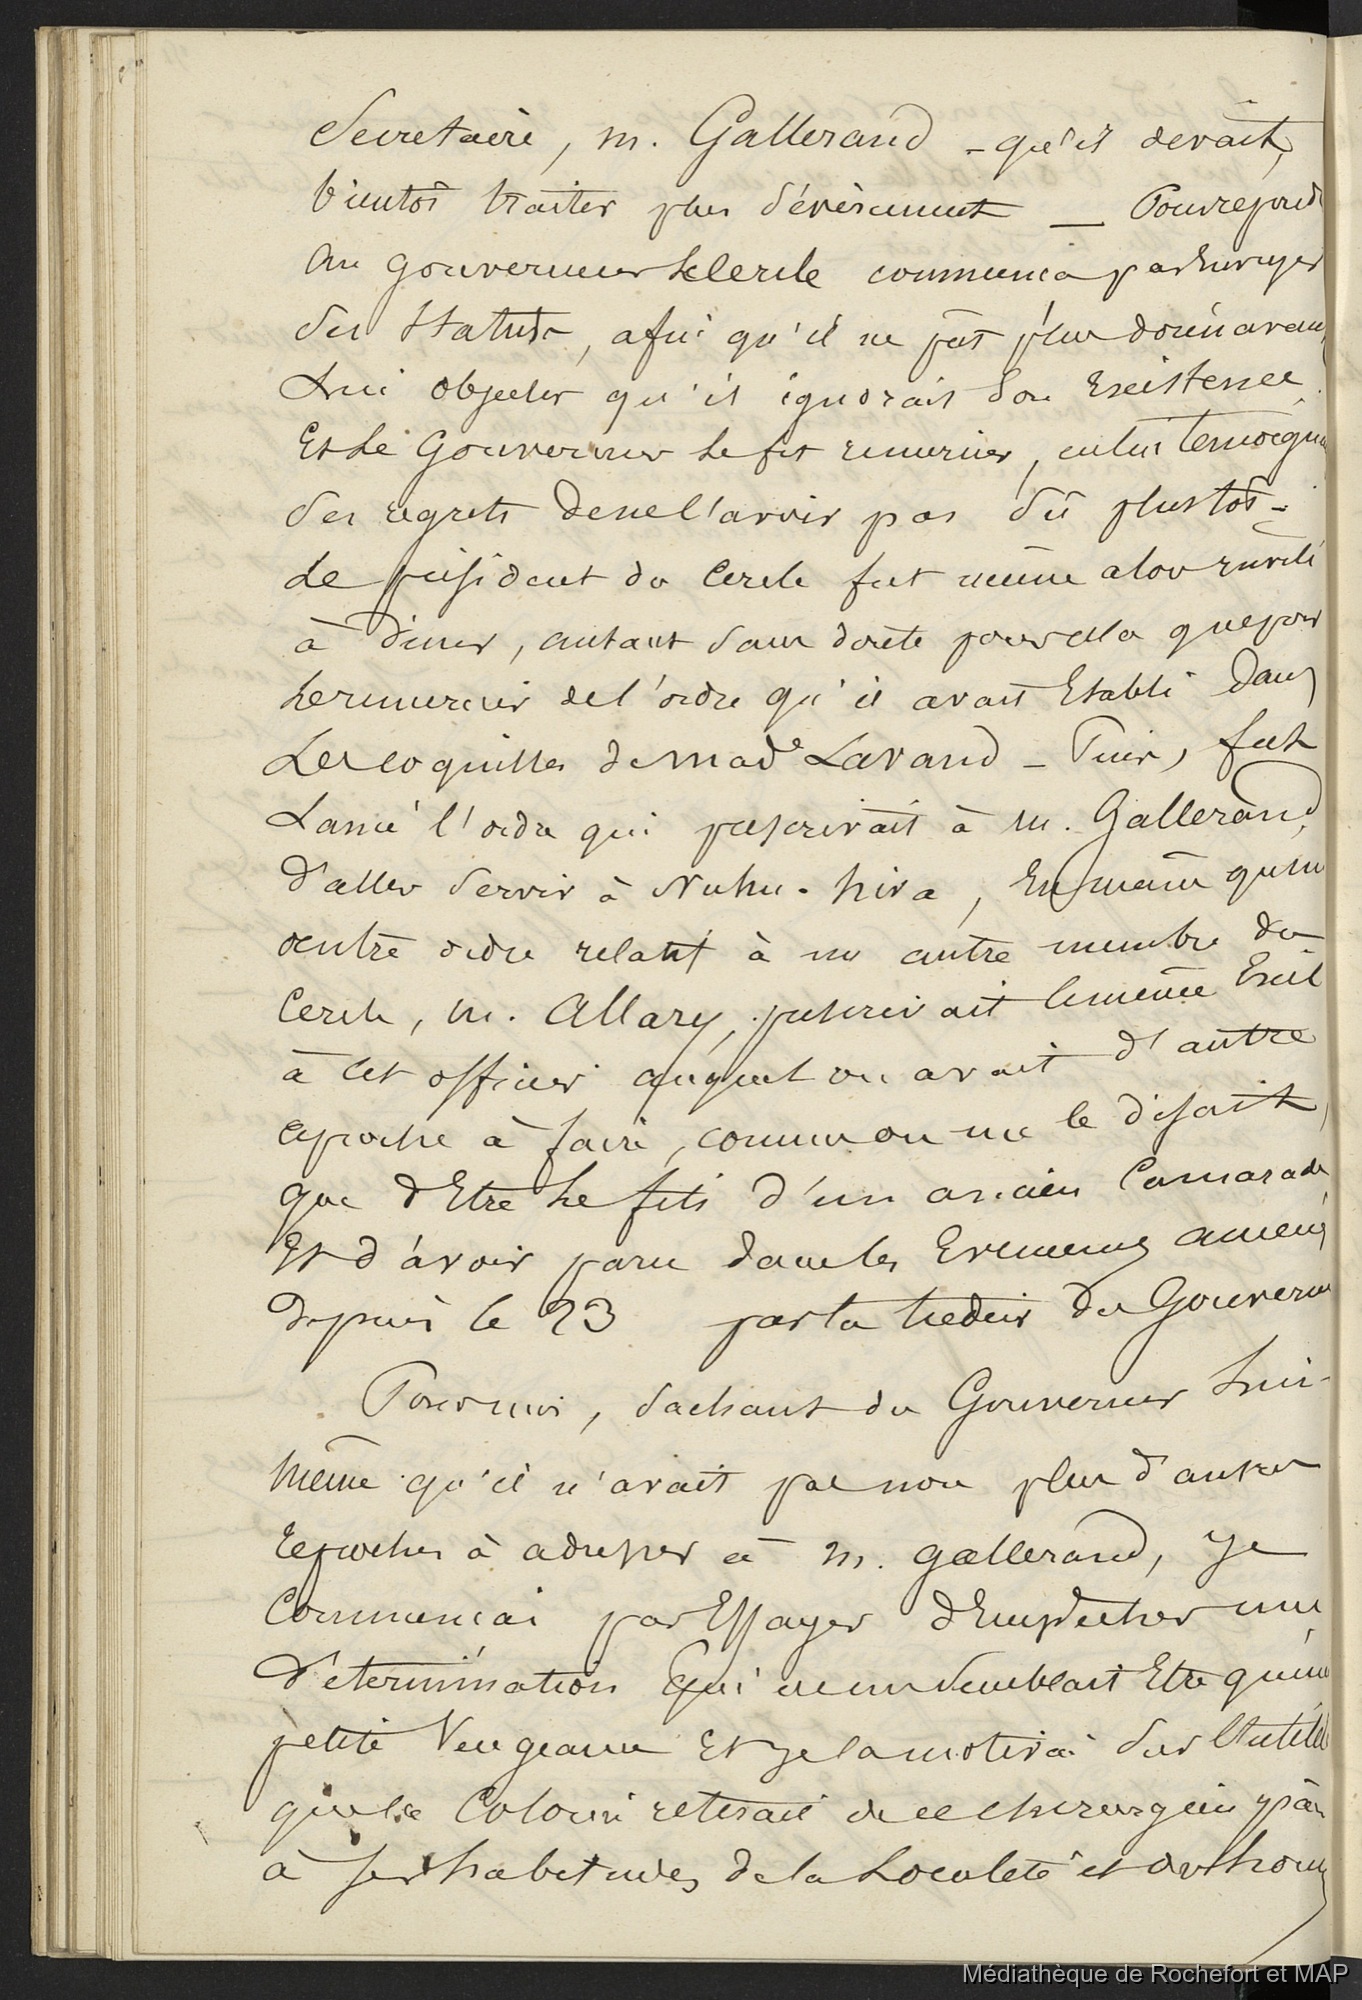 Secretaire, m. Gallerand - qu'il devait,
bientôt traiter plus sévèrement — Pour repondre
au gouverneur le Cercle commença par envoyer
ses statuts, afin qu'il ne pût plus dorénavant
lui objecter qu'il ignorait son Existence.
Et le Gouverneur le fit remercier, en lui temoignant
ses regrets de ne l'avoir pas sû plustôt -
Le président du Cercle fut même alors invité
à diner, autant sans doute pour cela que pour
le remercier de l'ordre qu'il avait Etabli dans
Les coquilles de made Lavaud - Puis, fut
Lancé l'ordre qui prescrivait à m. Gallerand,
d'aller servir à Nuhu-hiva, En même qu'un
autre ordre relatif à un autre membre du
Cercle, m. Allary, prescrivait le même Exil
à cet officier auquel on avait d'autre
reproche à faire, comme on me le disait,
que d'Etre le fils d'un ancien Camarade
Et d'avoir paru dans les Evenemens amenés
depuis le 23 par la tiedeur du Gouverneur
Pour moi, sachant du Gouverneur lui-
même qu'il n'avait pas non plus d'autres
reproches à adresser à m. gallerand, je
Commençai par Essayer d'Empêcher une
détermination qui ne me semblait Etre qu'une
petite Vengeance Et je la motivai sur l'utilité
que la Colonie retirait de ce chirurgien
à ses habitudes de la Localité et